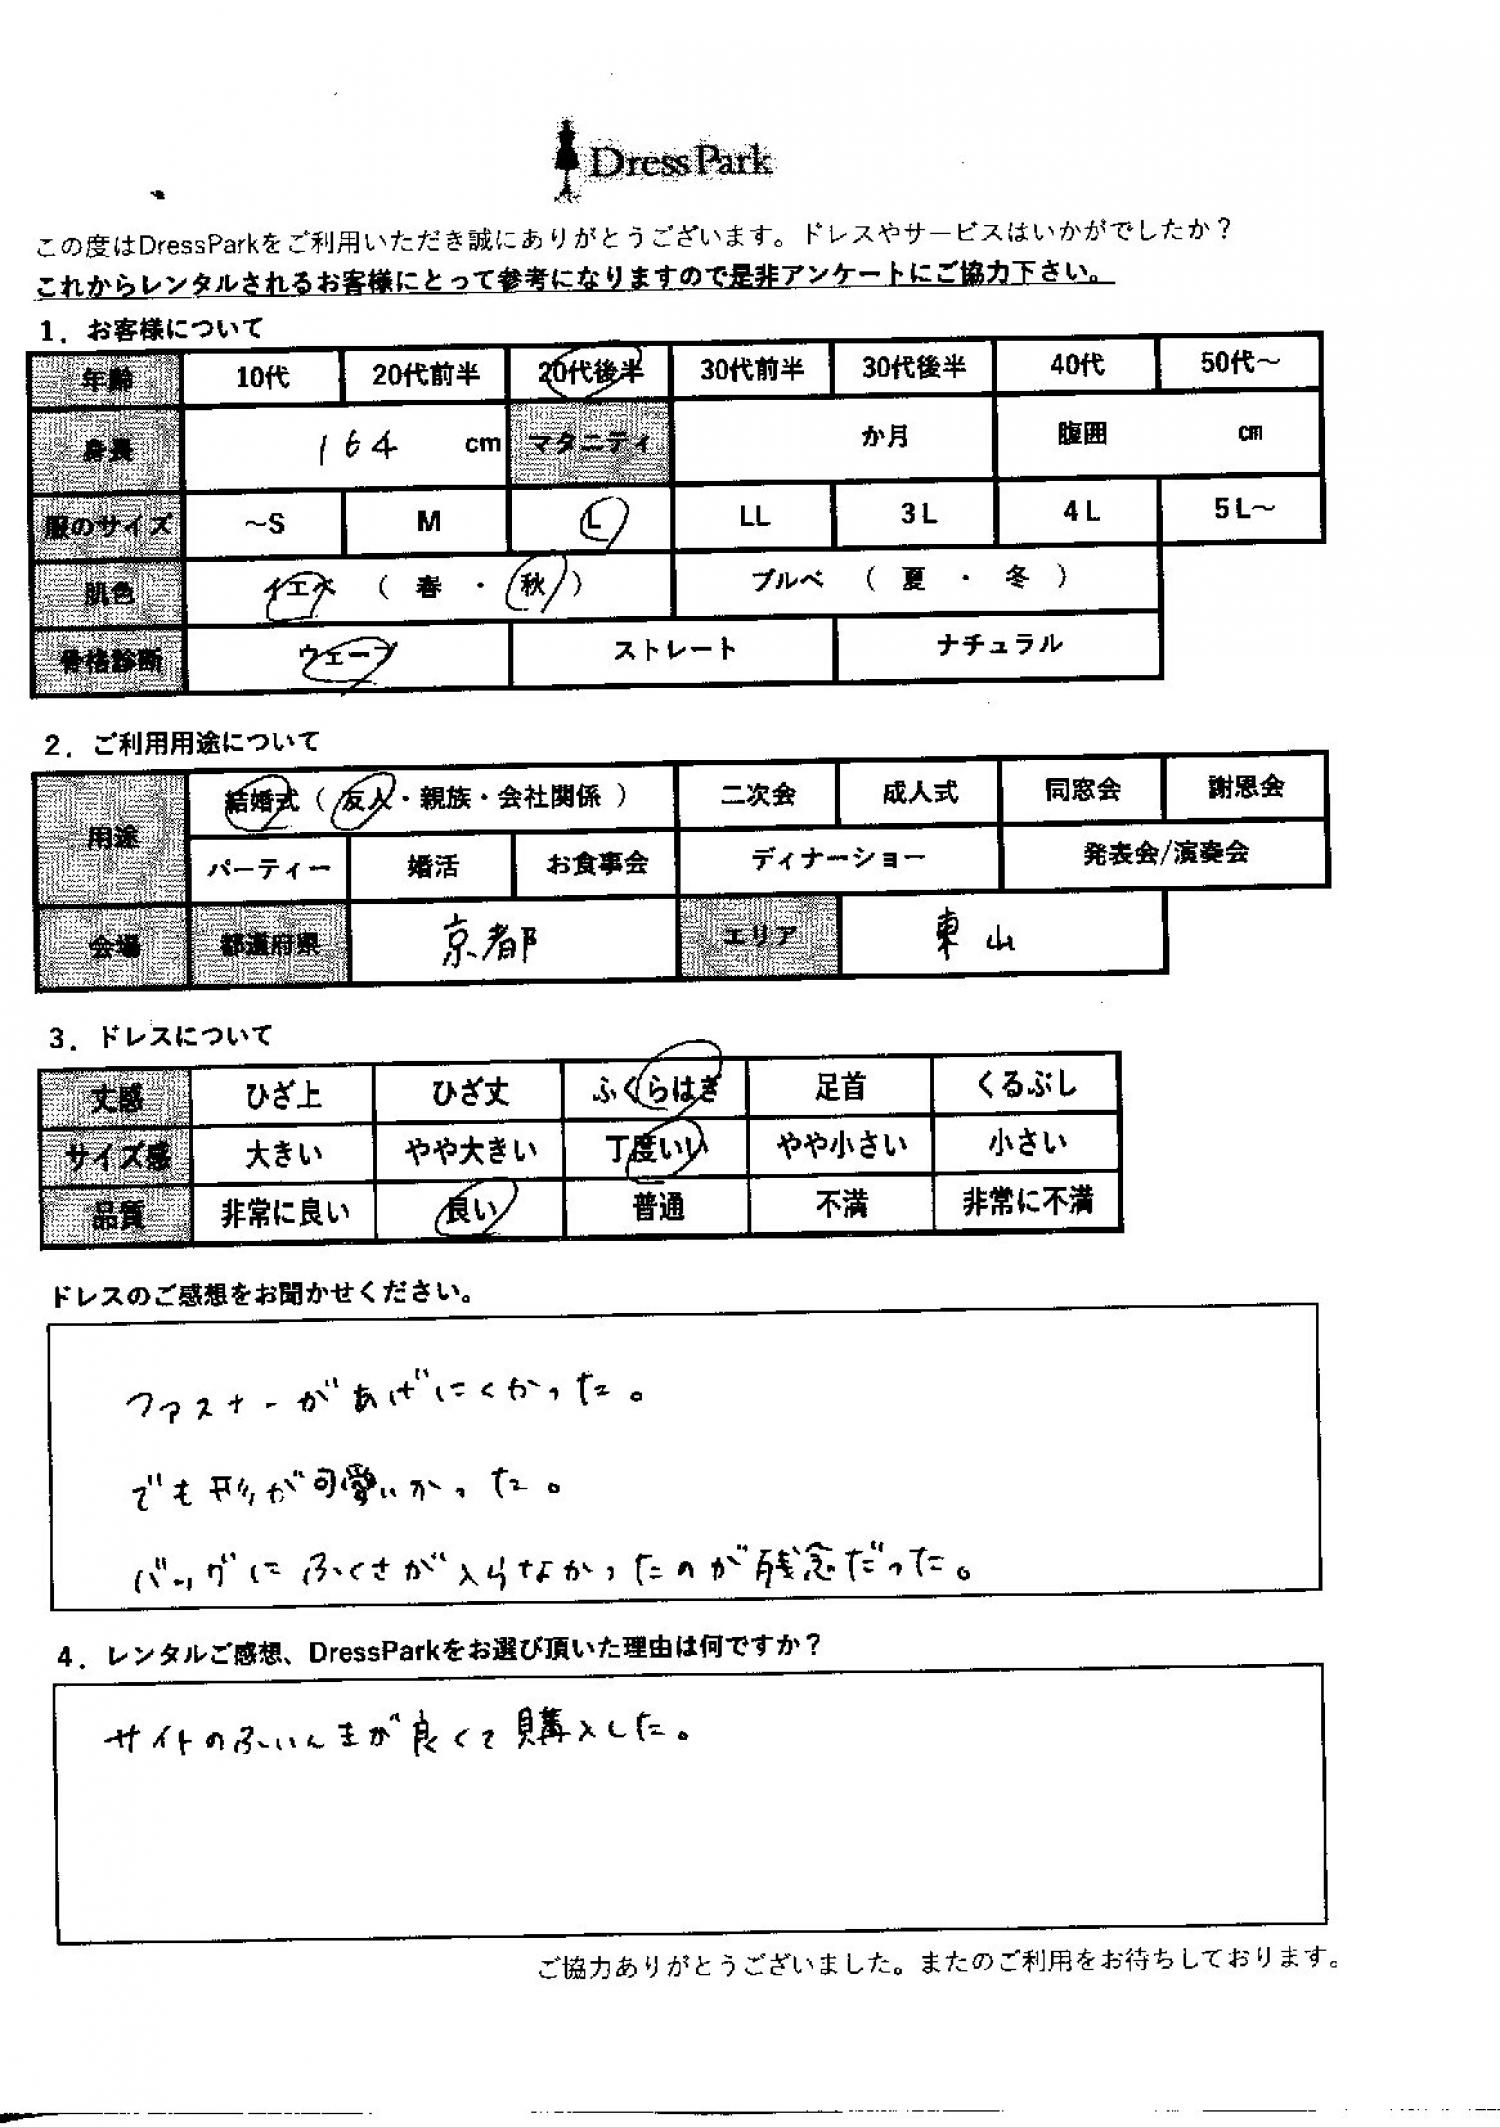 DressPark
この度はDressParkをご利用いただき誠にありがとうございます。ドレスやサービスはいかがでしたか？
これからレンタルされるお客様にとって参考になりますので是非アンケートにご協力下さい。
1．お客様について
年齢 10代 20代前半 20代後半 30代前半 30代後半 40代 50代～
身長 164 cm マタニティ か月 腹囲 cm
服のサイズ ～S M L LL 3L 4L 5L～
肌色 イエベ （ 春 ・ 秋 ） ブルベ （ 夏 ・ 冬 ）
骨格診断 ウェーブ ストレート ナチュラル
2．ご利用用途について
用途 結婚式（ 友人・親族・会社関係 ） 二次会 成人式 同窓会 謝恩会
パーティー 婚活 お食事会 ディナーショー 発表会/演奏会
会場 都道府県 京都 エリア 東山
3．ドレスについて
丈感 ひざ上 ひざ丈 ふくらはぎ 足首 くるぶし
サイズ感 大きい やや大きい 丁度いい やや小さい 小さい
品質 非常に良い 良い 普通 不満 非常に不満
ドレスのご感想をお聞かせください。
ファスナーがあげにくかった。
でも形が可愛いかった。
バッグにふくさが入らなかったのが残念だった。
4．レンタルご感想、DressParkをお選び頂いた理由は何ですか？
サイトのふいんきが良くて購入した。
ご協力ありがとうございました。またのご利用をお待ちしております。